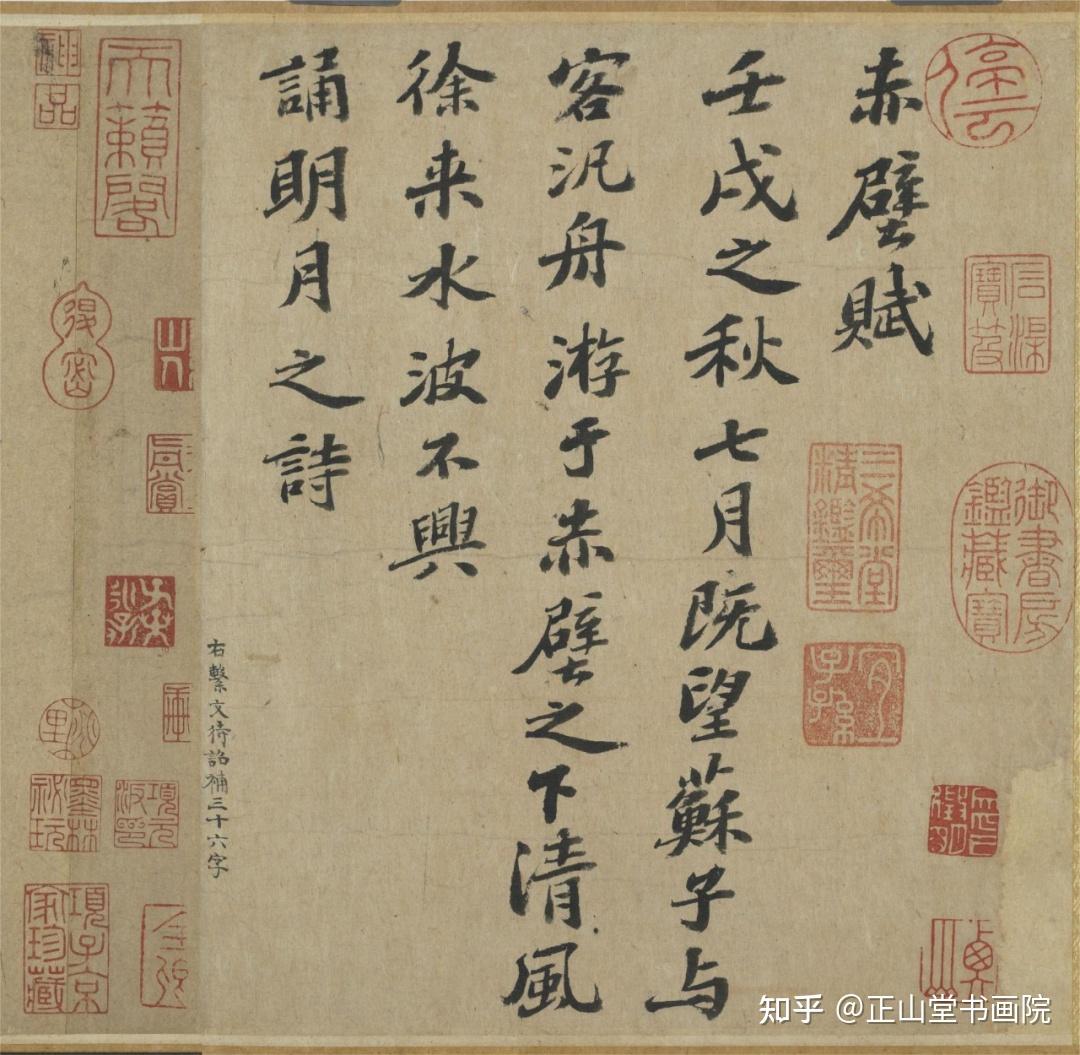 停云
石渠寶笈
御書房鑑藏寶
赤壁賦
三希堂精鑑璽
宜子孫
壬戌之秋七月既望蘇子与
客汎舟游于赤壁之下清風
徐来水波不興
誦明月之詩
右繫文待詔補三十六字
天籟閣
神品
項元汴印
墨林祕玩
項子京家珍藏
知乎 @正山堂书画院